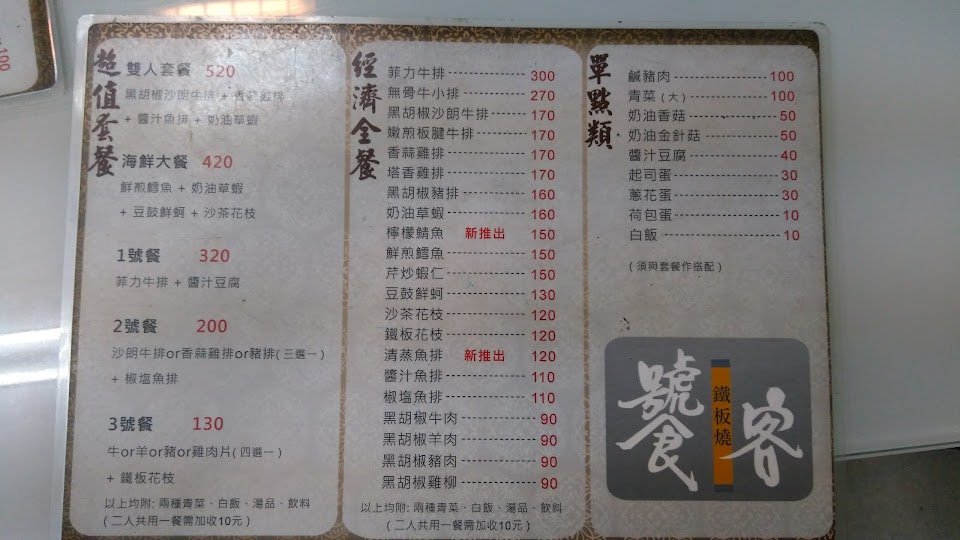 超值套餐
雙人套餐 520
黑胡椒沙朗牛排 + 香蒜雞排
+ 醬汁魚排 + 奶油草蝦
海鮮大餐 420
鮮煎鱈魚 + 奶油草蝦
+ 豆鼓鮮蚵 + 沙茶花枝
1號餐 320
菲力牛排 + 醬汁豆腐
2號餐 200
沙朗牛排or香蒜雞排or豬排(三選一)
+ 椒塩魚排
3號餐 130
牛or羊or豬or雞肉片(四選一)
+ 鐵板花枝
以上均附: 兩種青菜、白飯、湯品、飲料
(二人共用一餐需加收10元)
經濟全餐
菲力牛排 300
無骨牛小排 270
黑胡椒沙朗牛排 170
嫩煎板腱牛排 170
香蒜雞排 170
塔香雞排 170
黑胡椒豬排 160
奶油草蝦 160
檸檬鯖魚 新推出 150
鮮煎鱈魚 150
芹炒蝦仁 150
豆鼓鮮蚵 130
沙茶花枝 120
鐵板花枝 120
清蒸魚排 新推出 120
醬汁魚排 110
椒塩魚排 110
黑胡椒牛肉 90
黑胡椒羊肉 90
黑胡椒豬肉 90
黑胡椒雞柳 90
以上均附: 兩種青菜、白飯、湯品、飲料
(二人共用一餐需加收10元)
單點類
鹹豬肉 100
青菜(大) 100
奶油香菇 50
奶油金針菇 50
醬汁豆腐 40
起司蛋 30
蔥花蛋 30
荷包蛋 10
白飯 10
(須與套餐作搭配)
饕
鐵板燒
客
100